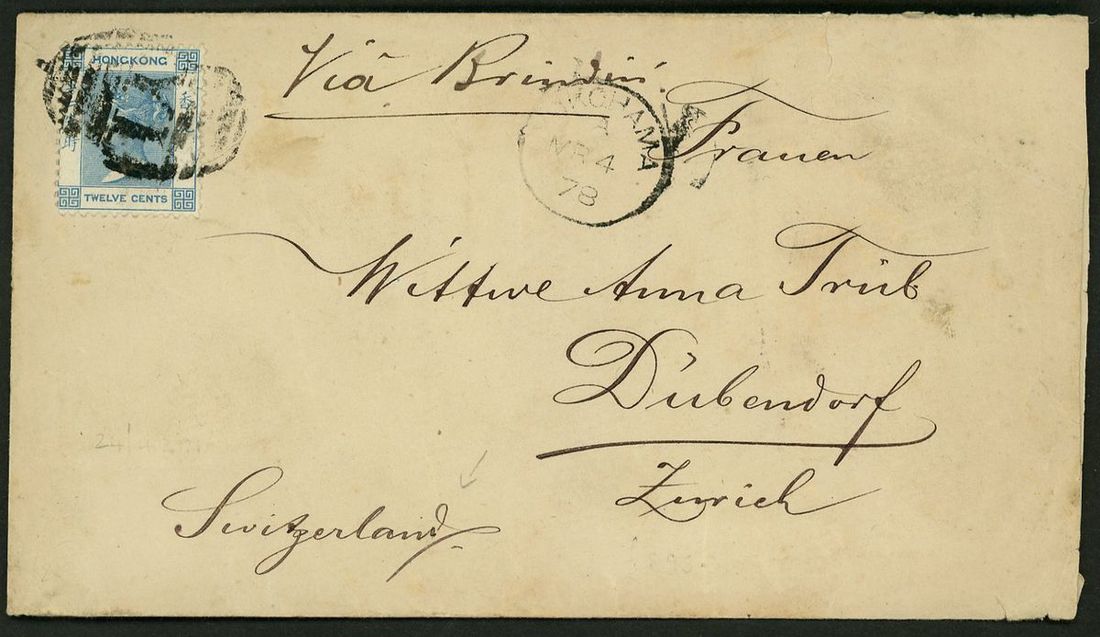 HONGKONG
TWELVE CENTS
Viâ Brindisi
YOKOHAMA
MR 4
78
Frauen
Wittwe Anna Trüb
Dübendorf
Zurich
Switzerland